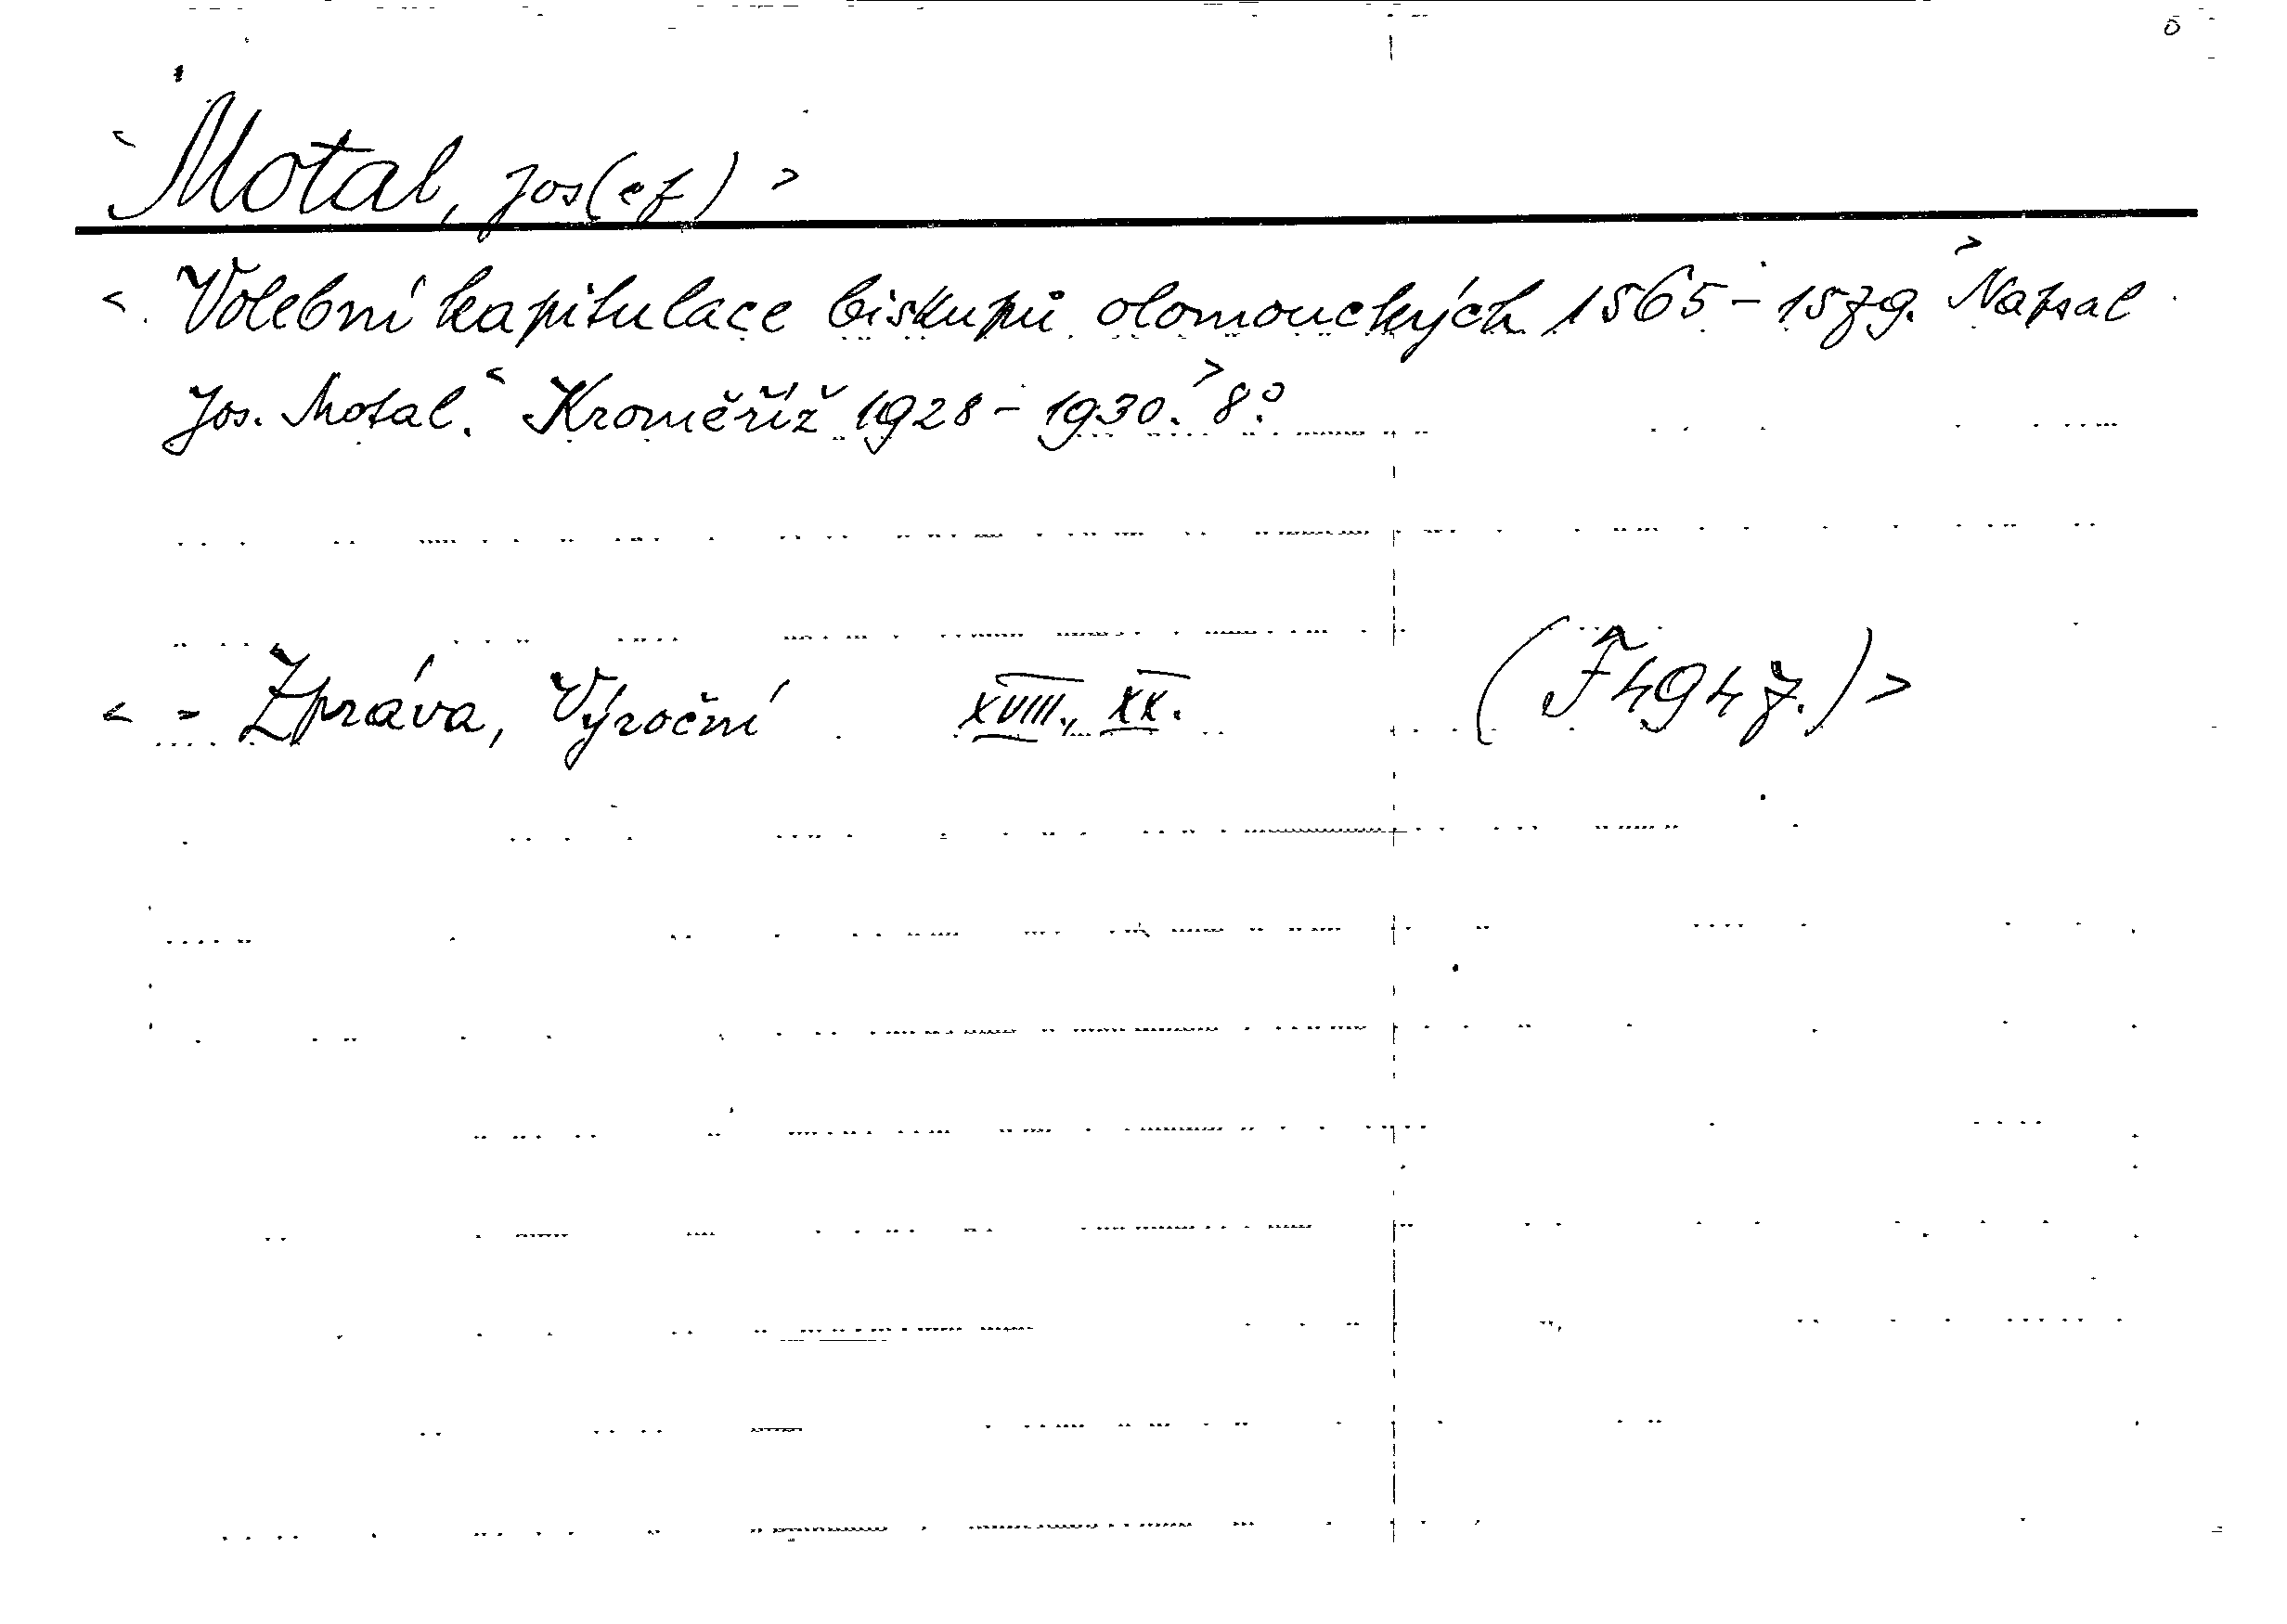 <Motal, Jos(ef)>
< Volební kapitulace biskupů olomouckých 1565-1579.> Napsal
Jos. Motal.< Kroměříž 1928-1930.> 8°
< = Zpráva, Výroční XVIII., XX. (F 4947.)>